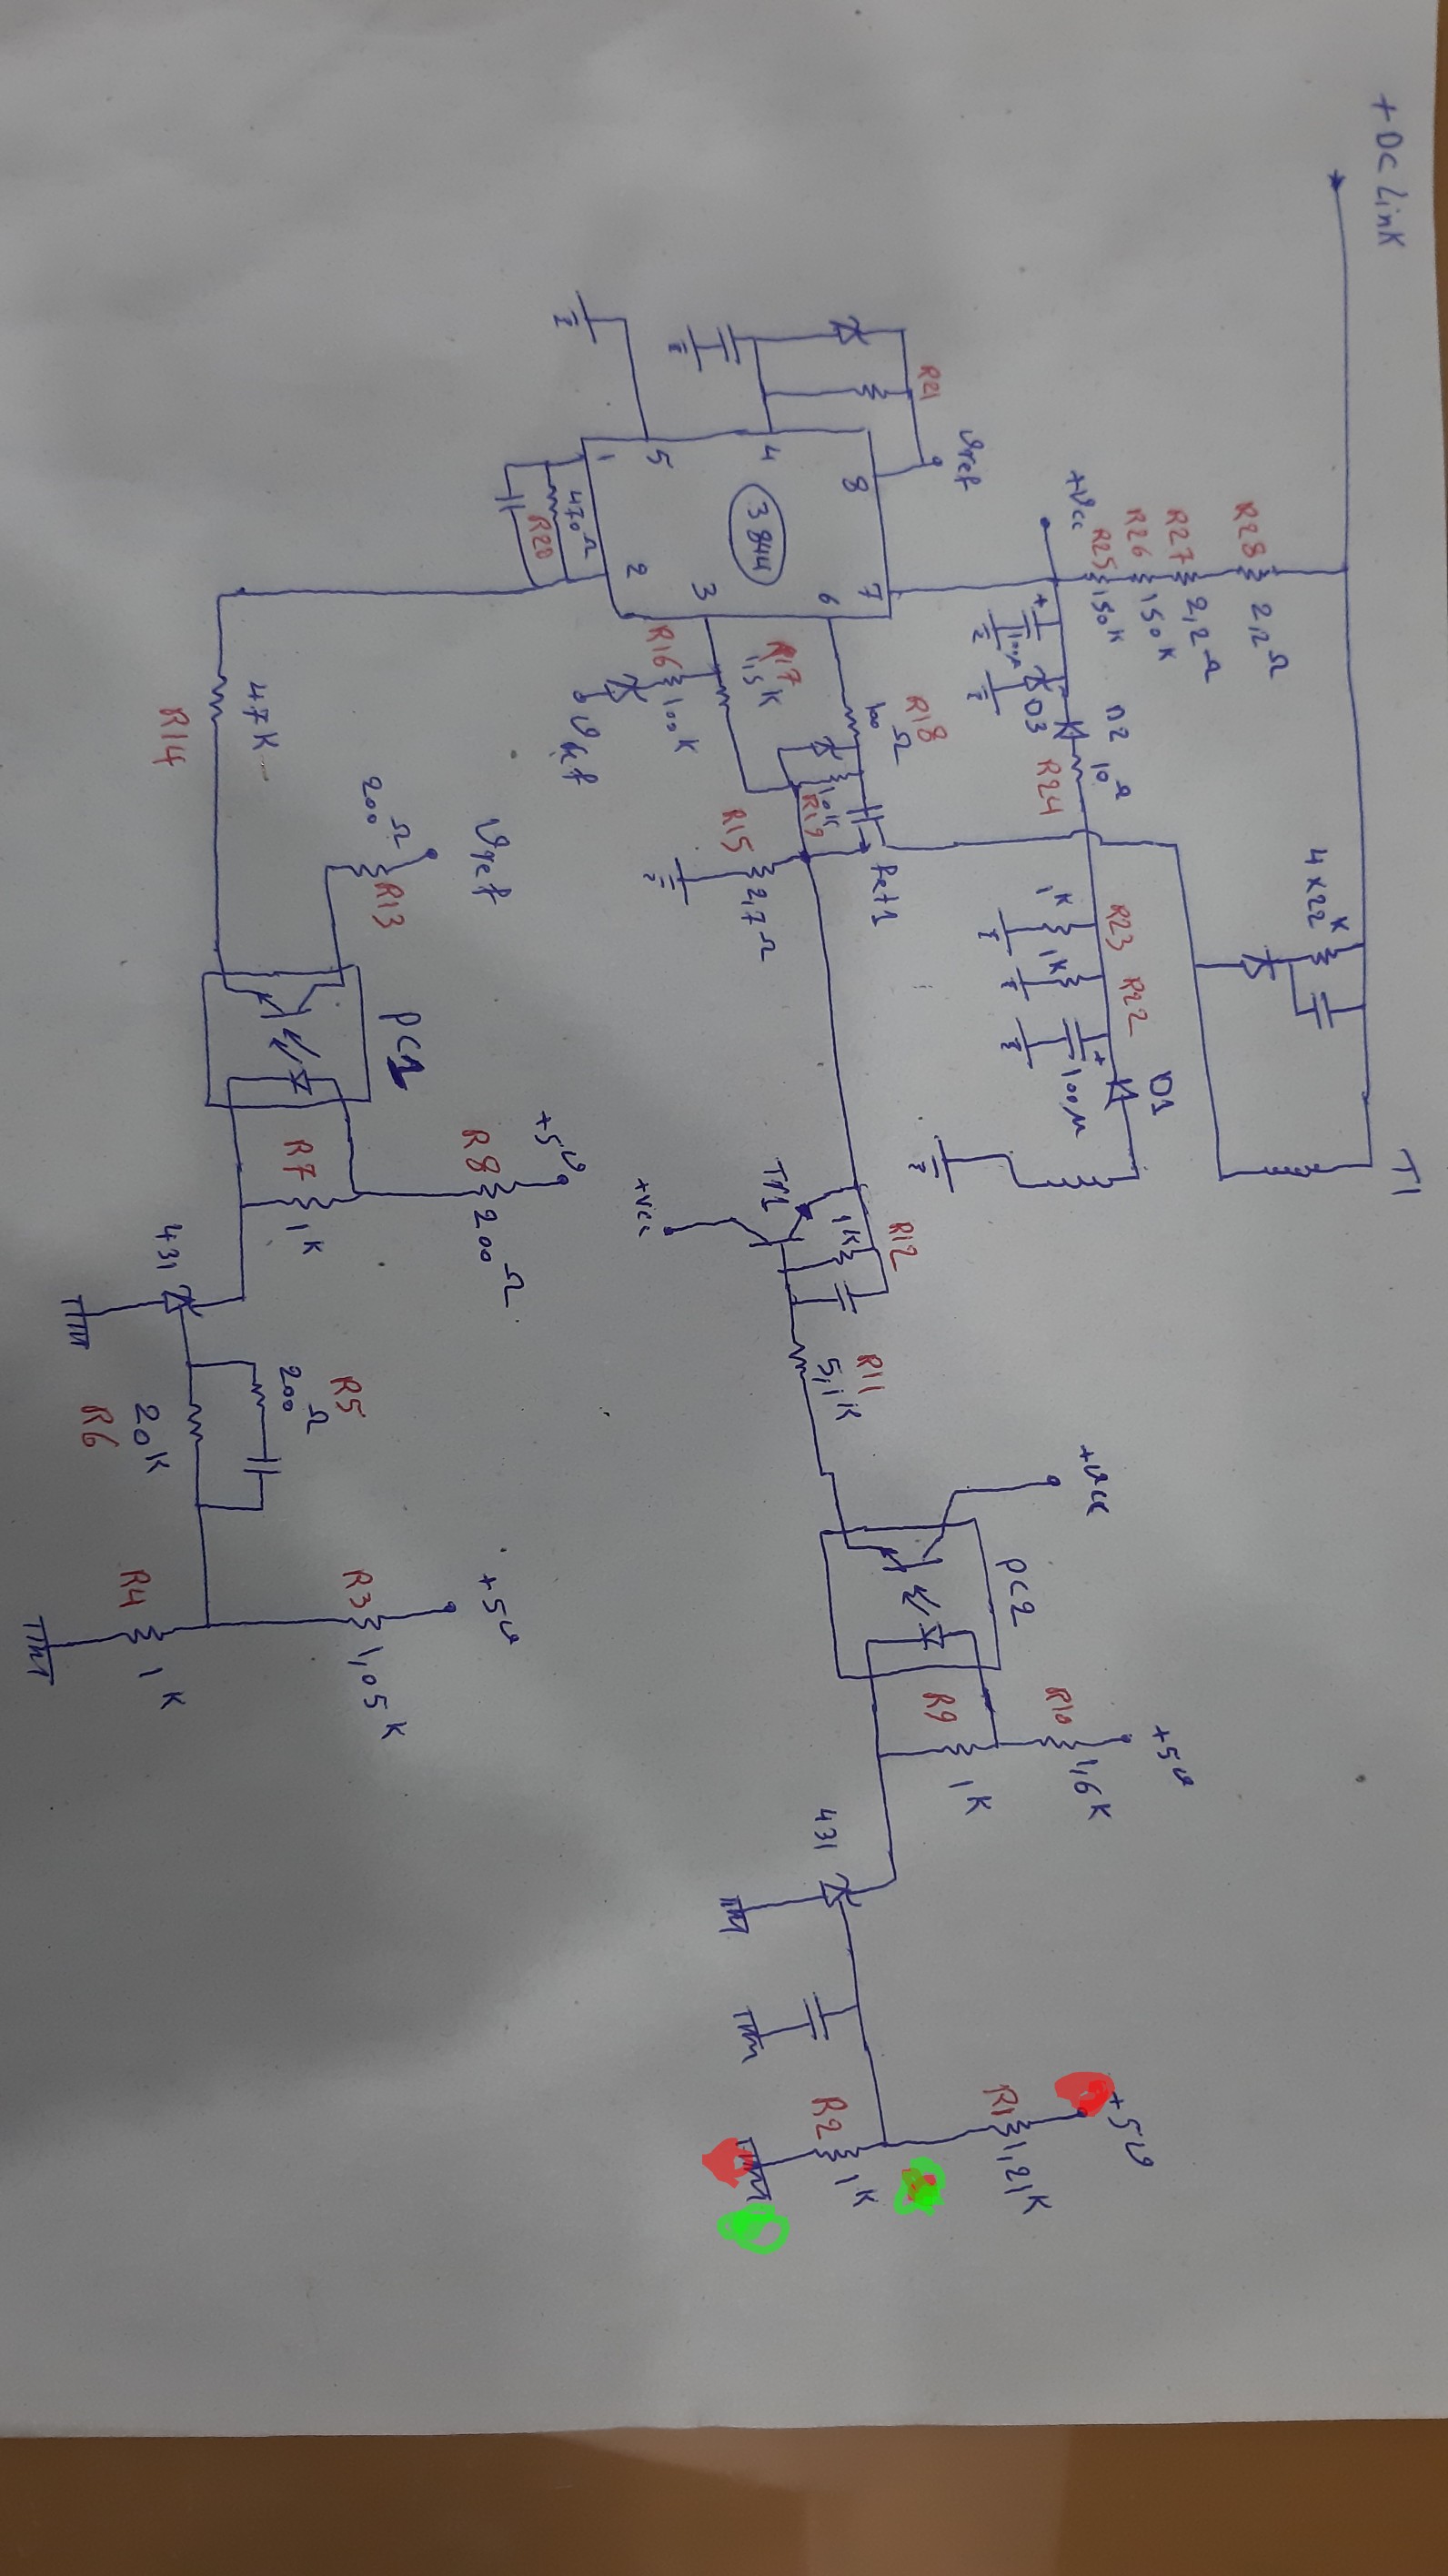 +DC Link
T1
4x22K
R28
2,2Ω
R27
2,2Ω
R26
150K
R25
150K
+Vcc
D3
D2
10Ω
R24
R23
1K
R22
1K
+
100µ
D1
R21
Vref
8
7
4
6
3844
5
3
1
2
470Ω
R20
R18
100Ω
R17
1,5K
R16
100K
R19
10K
Fet1
R15
2,7Ω
R12
1K
TR1
+Vcc
R11
5,1K
+Vcc
PC2
R9
1K
R10
1,6K
+5V
431
R1
1,21K
+5V
R2
1K
47K
R14
Vref
200Ω
R13
PC1
R7
1K
R8
200Ω
+5V
431
R5
200Ω
20K
R6
R3
1,05K
+5V
R4
1K